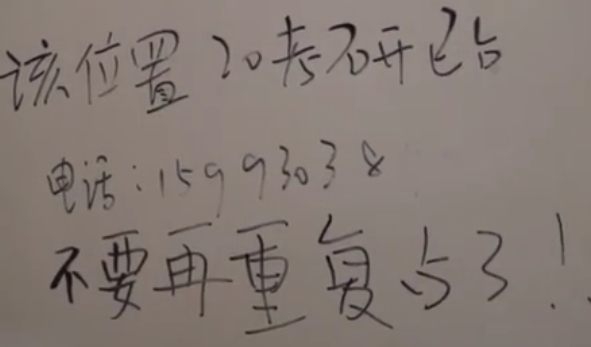 该位置20考研已占
电话:15993038
不要再重复占了!